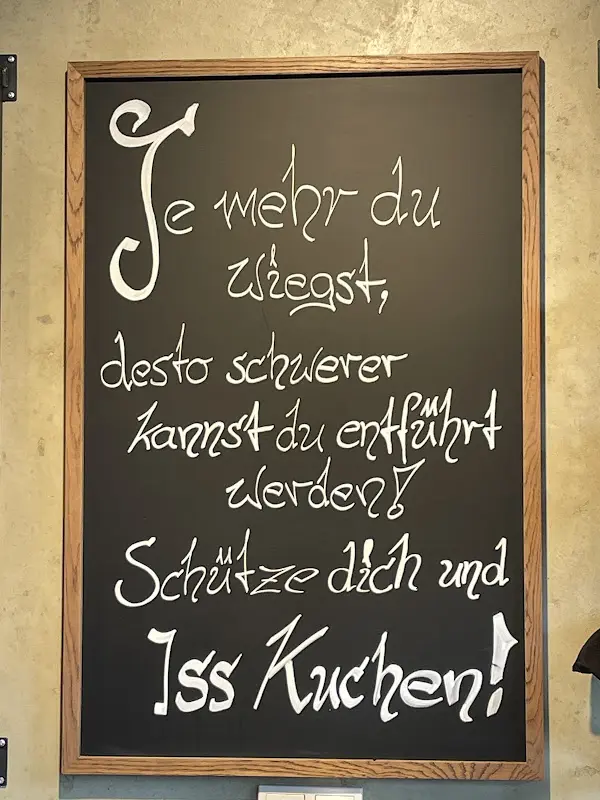 Je mehr du
wiegst,
desto schwerer
kannst du entführt
werden!
Schütze dich und
Iss Kuchen!